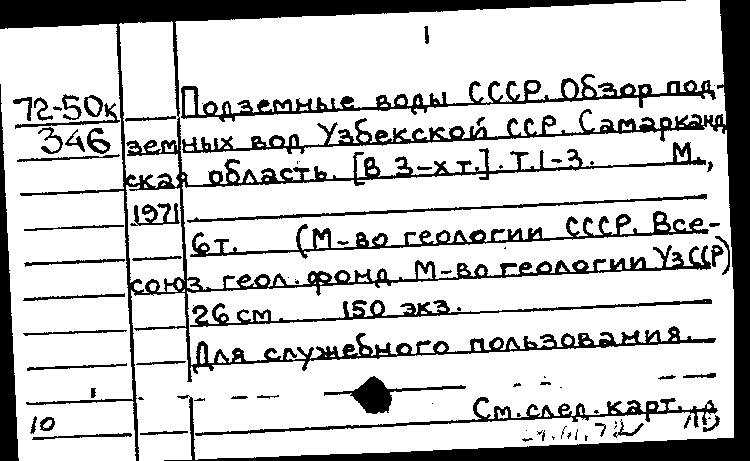 1
72-50к Подземные воды СССР. Обзор под-
346 земных вод Узбекской ССР. Самарканд
ская область. [В 3-х т.]. Т.1-3. М.,
1971
6т. (М-во геологии СССР. Все-
союз. геол. фонд. М-во геологии УзССР)
26 см. 150 экз.
Для служебного пользования.
См. след. карт.
10